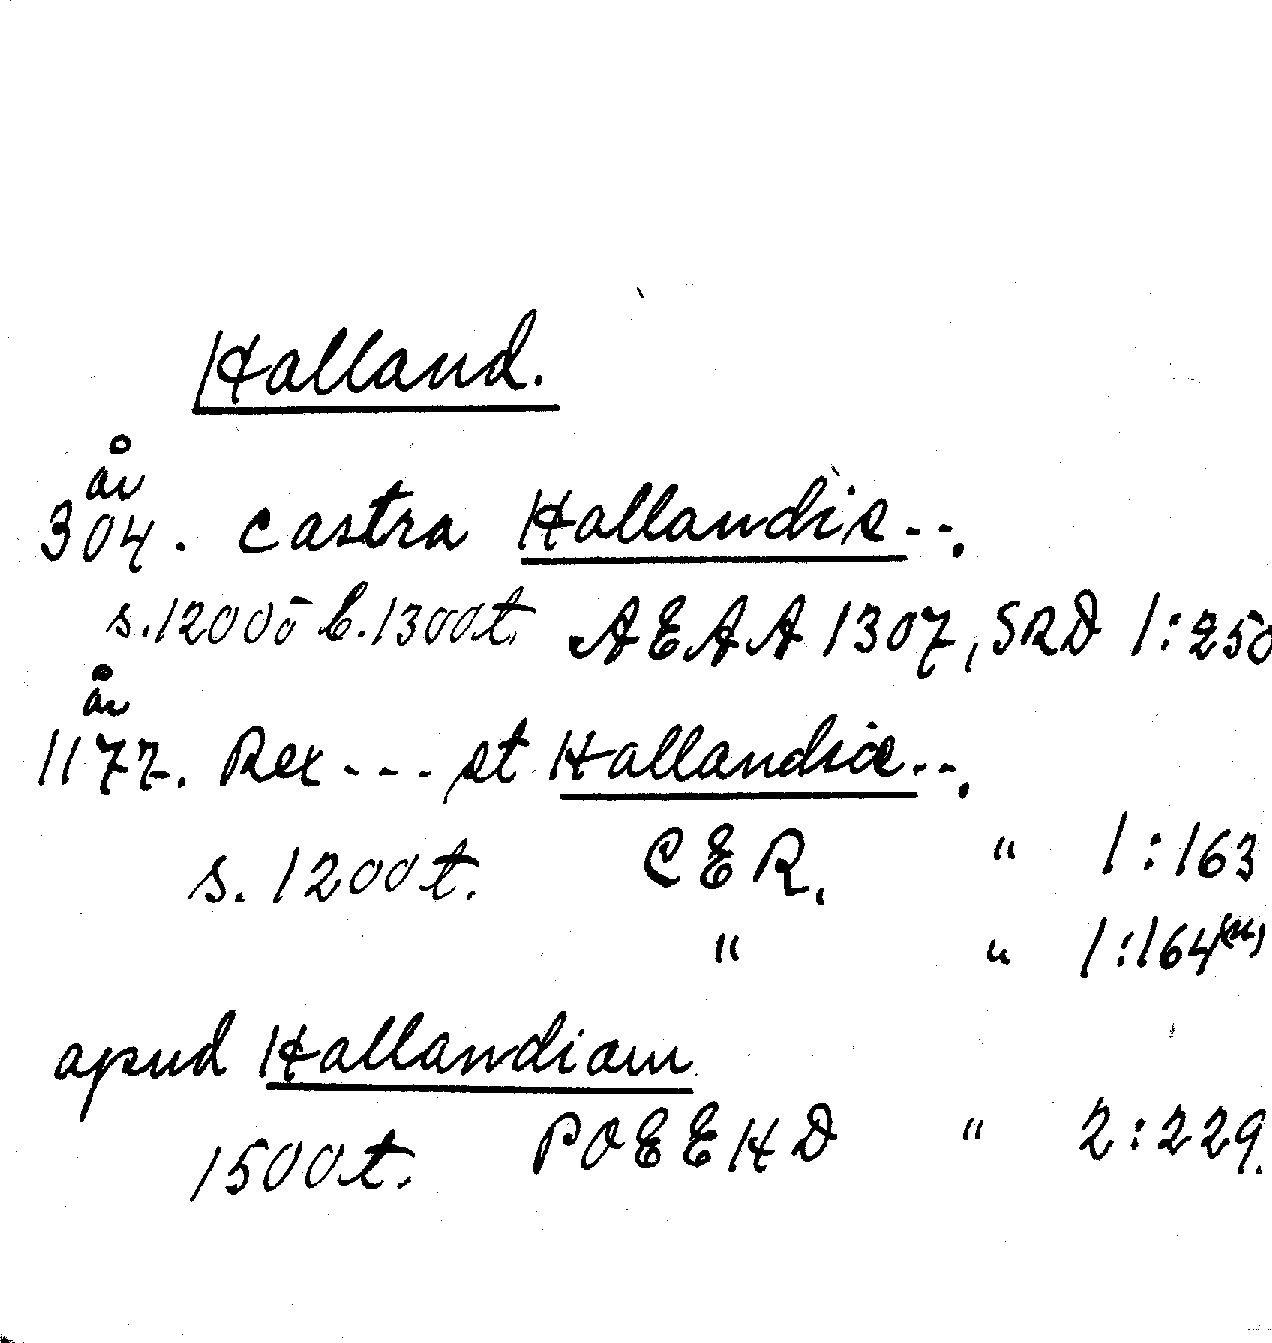 Halland.
år
304. castra Hallandie - -.
s.1200 o b.1300t. AEAA 1307, SRD 1:250
år
1177. Rex - - - et Hallandiæ - -.
s. 1200t. CER. " 1:163
" " 1:164(n)
apud Hallandiam
1500t. POEEHD " 2:229.